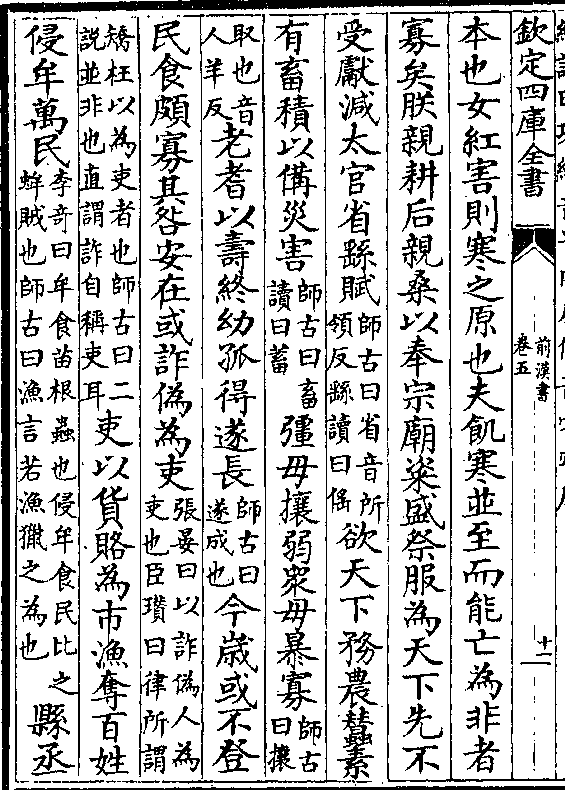 欽定四庫全書
前漢書
卷五
十一
本也女紅害則寒之原也夫飢寒並至而能亡為非者
寡矣朕親耕后親桑以奉宗廟粢盛祭服為天下先不
受獻減太官省繇賦師古曰省音所領反繇讀曰傜欲天下務農蠶素
有畜積以備災害師古曰畜讀曰蓄彊毋攘弱衆毋暴寡師古曰攘
取也音人羊反老耆以壽終幼孤得遂長師古曰遂成也今歳或不登
民食頗寡其咎安在或詐偽為吏張晏曰以詐偽人為吏也臣瓚曰律所謂
矯枉以為吏者也師古曰二說並非也直謂詐自稱吏耳吏以貨賂為市漁奪百姓
侵牟萬民李奇曰牟食苗根蟲也侵牟食民比之蛑賊也師古曰漁言若漁獵之為也縣丞